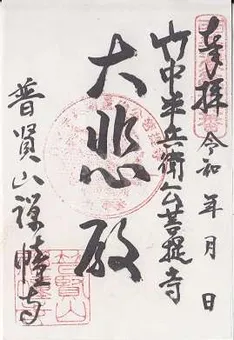 奉拝
令和 年 月 日
竹中半兵衛公菩提寺
大悲殿
普賢山禅幢寺